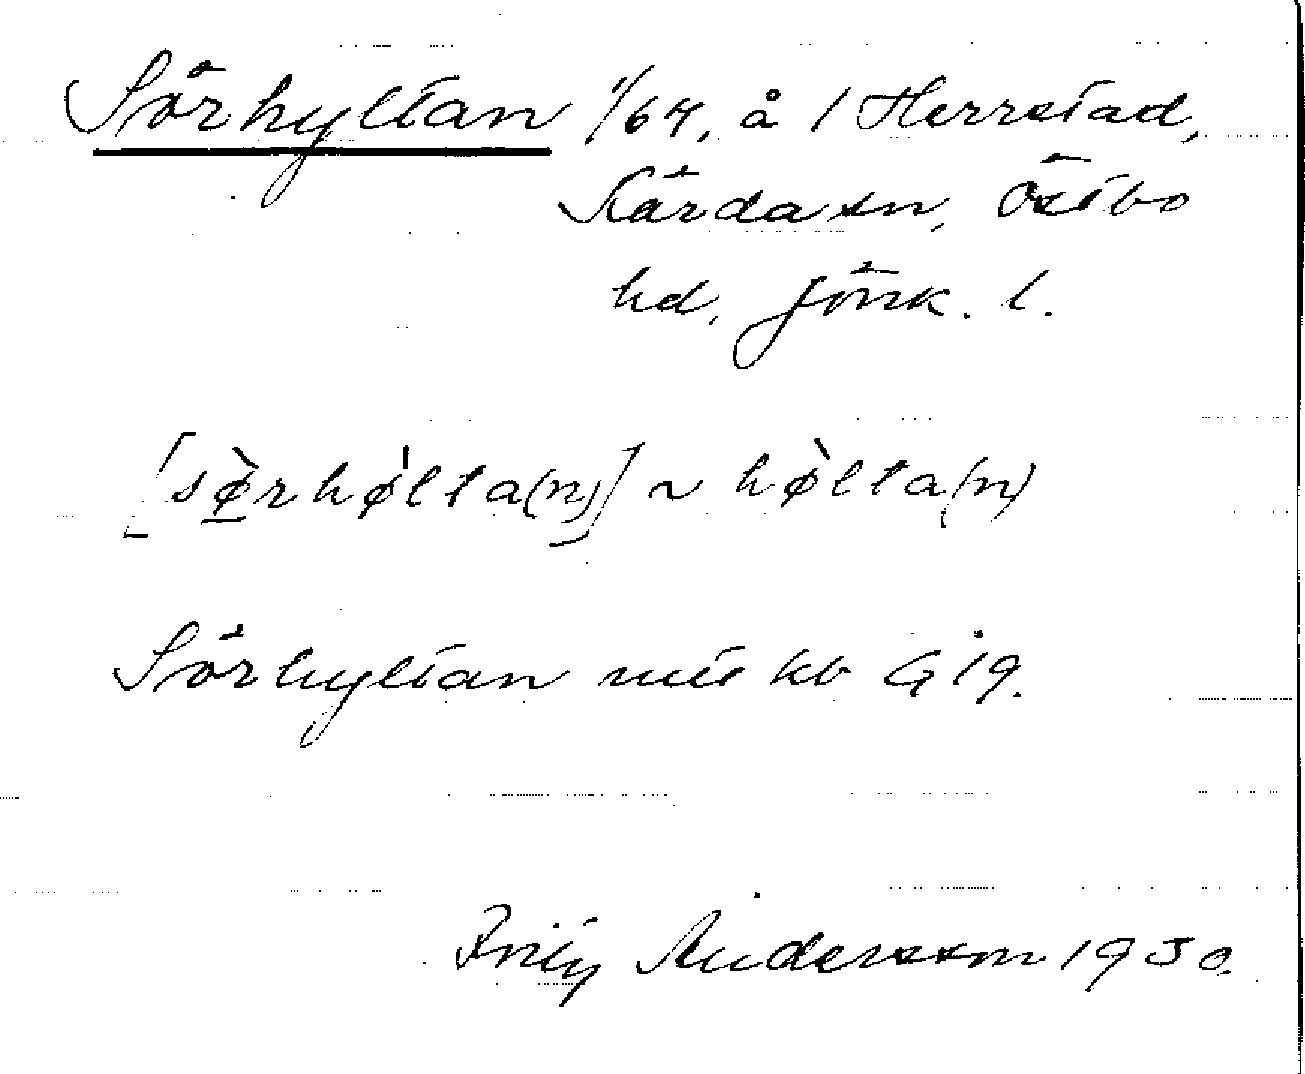 Sörhyltan 1/64, å 1 Herrestad,
Kärda sn, Östbo
hd, Jönk. l.
[sø̀rhøl̍ta(n)] ~ hø̀lta(n)
Sörhyltan kb G 19.
Andersson 1930.